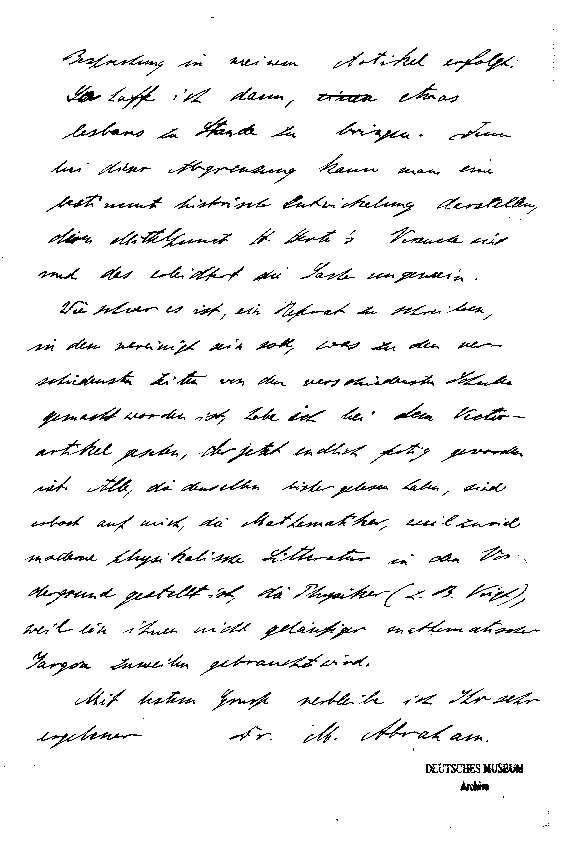 Besprechung in meinem Artikel erfolgt.
So hoff ich dann, einen etwas
lesbares zu Stande zu bringen. Denn
bei dieser Abgrenzung kann man eine
bestimmt historische Entwickelung darstellen,
deren Mittelpunct H. Hertz's Versuche sind
und das erleichtert die Sache ungemein.
Wie schwer es ist, ein Referat zu schreiben,
in dem vereinigt sein soll, was zu den ver-
schiedensten Zeiten von den verschiedensten
gemacht worden ist, habe ich bei dem Vector-
artikel gesehen, der jetzt endlich fertig geworden
ist. Alle, die denselben bisher gelesen haben, sind
erbost auf mich, die Mathematiker, weil zuviel
moderne physikalische Litteratur in den Vor-
dergrund gestellt ist, die Physiker (z. B. Voigt),
weil ein ihnen nicht geläufiger mathematischer
Jargon zuweilen gebraucht wird.
Mit bestem Gruss verbleibe ich Ihr sehr
ergebener Dr. M. Abraham.
DEUTSCHES MUSEUM
Archiv